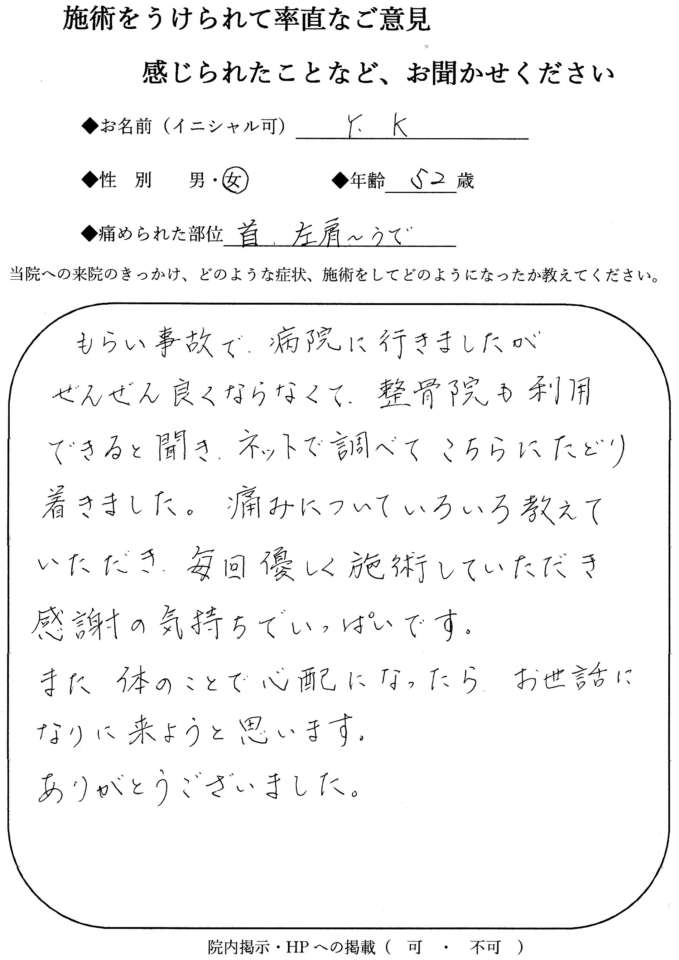 施術をうけられて率直なご意見
感じられたことなど、お聞かせください
◆お名前（イニシャル可） Y. K
◆性　別　　男・女　　◆年齢 52 歳
◆痛められた部位 首、左肩～うで
当院への来院のきっかけ、どのような症状、施術をしてどのようになったか教えてください。
もらい事故で、病院に行きましたが
ぜんぜん良くならなくて、整骨院も利用
できると聞き、ネットで調べてこちらにたどり
着きました。痛みについていろいろ教えて
いただき、毎回優しく施術していただき
感謝の気持ちでいっぱいです。
また体のことで心配になったら、お世話に
なりに来ようと思います。
ありがとうございました。
院内掲示・HPへの掲載（　可　・　不可　）